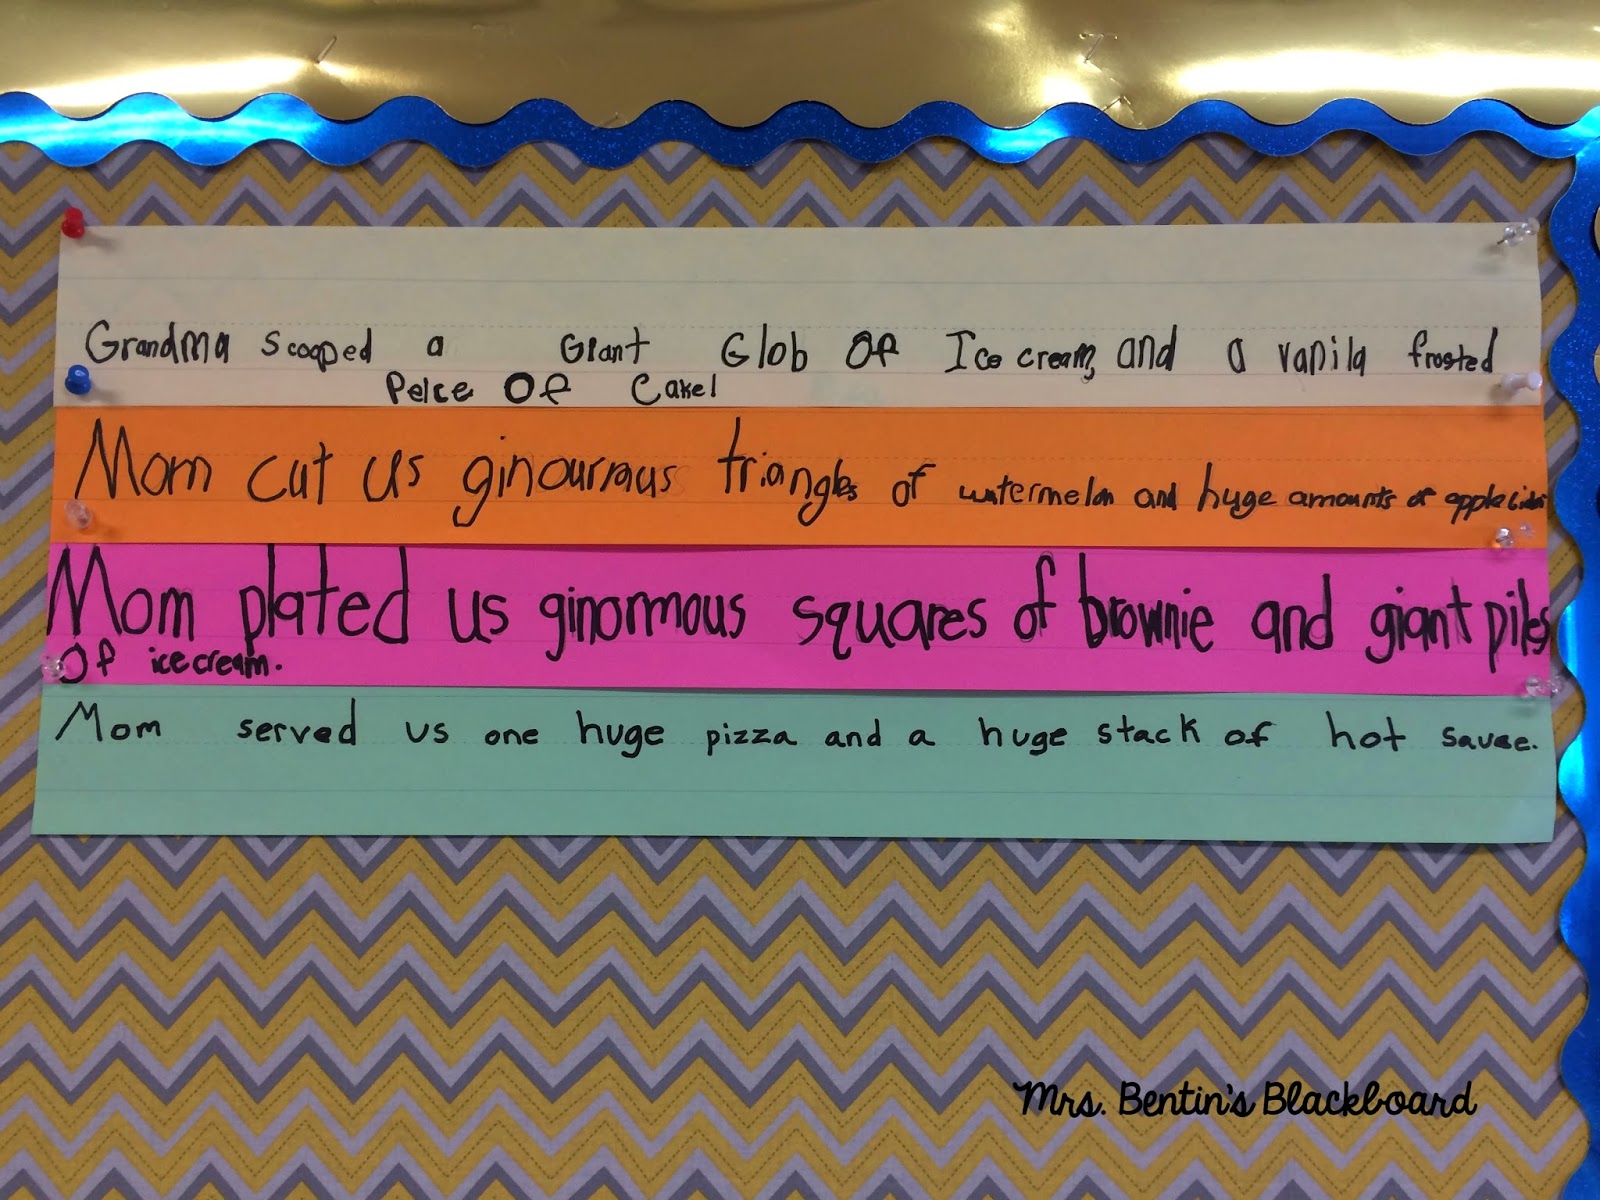 Grandma scooped a Giant Glob Of Ice cream, and a vanila frosted
Peice Of Cake!
Mom cut us ginourmous triangles of watermelon and huge amounts of apple cider
Mom plated us ginormous squares of brownie and giant piles
Of ice cream.
Mom served us one huge pizza and a huge stack of hot sauce.
Mrs. Bentin's Blackboard